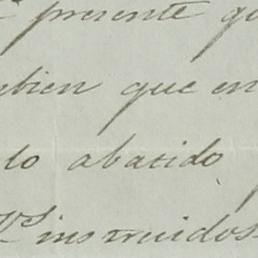 presente
que en
lo abatido
Vs instruidos